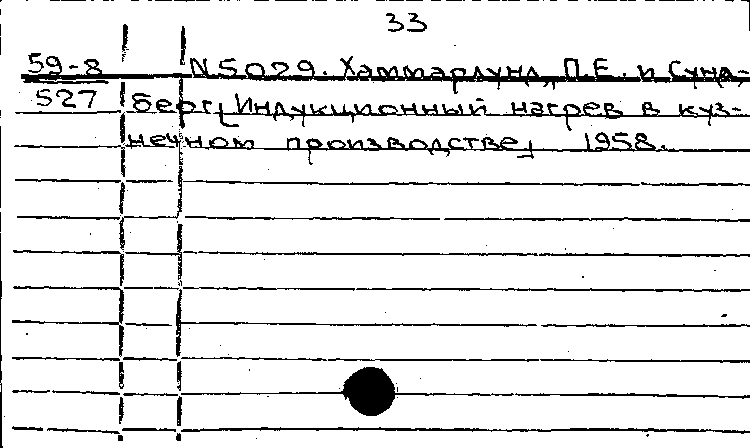 33
59-8 N5029. Хаммарлунд, П.Е. и Сунд-
527 берг[Индукционный нагрев в куз-
нечном производстве] 1958.